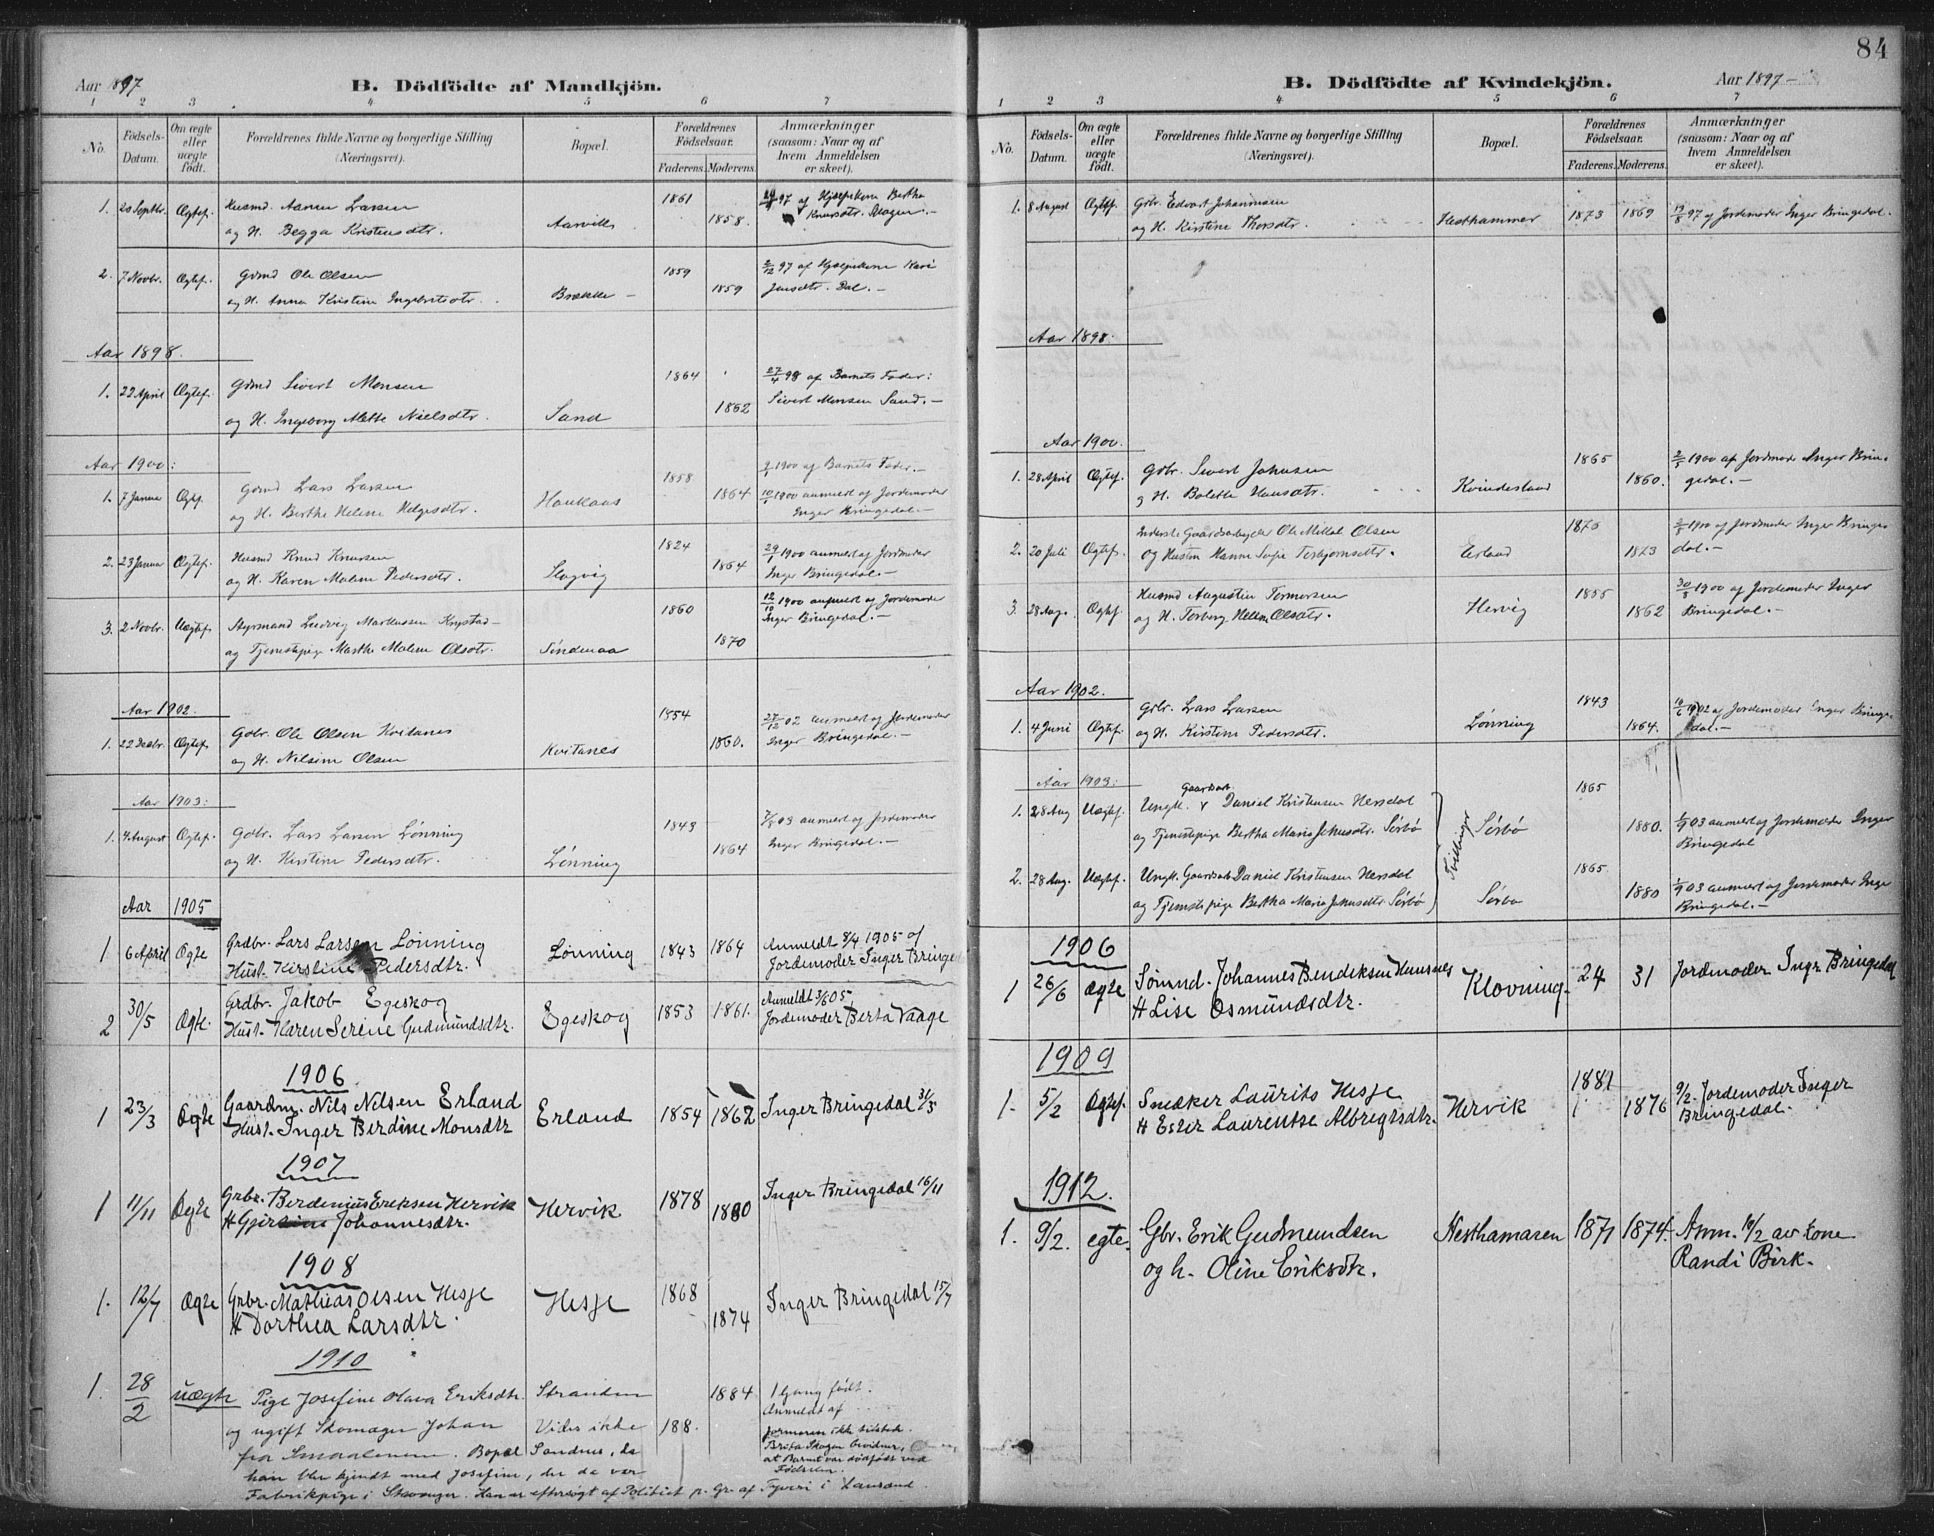 Aar 1897
B. Dödfödte af Mandkjön.
1 2 3 4 5 6 7
No.
Födsels-Datum.
Om ægte eller uægte födt.
Forældrenes fulde Navne og borgerlige Stilling (Næringsvei).
Bopæl.
Forældrenes Födselsaar.
Faderens. Moderens.
Anmærkninger (saasom: Naar og af hvem Anmeldelsen er skeet).
1. 20 Septbr. Ægtef. Husmd. Aanen Larsen 1861 97 af Hjælpekone Bertha
og H. Begga Kristensdtr. Aarvik 1858. Knutsdtr.
2. 7 Novbr. Ægtef. Gdmd Ole Olsen 1859 2/12 97 af Hjælpekone Kari
og H. Anna Kristine Ingebretsdtr. Brække 1859 Jensdtr. Dal.
Aar 1898.
1. 22 April Ægtef. Gdmd Sivert Monsen 1864 27/4 98 af Barnets Fader:
og H. Ingeborg Mette Nielsdtr. Sand 1862 Sivert Monsen Sand.
Aar 1900:
1. 7 Januar Ægtf. Gdmd Lars Larsen 1858 1900 af Barnets Fader.
og H. Berthe Helene Helgesdtr. Haukaas 1864 1900 anmeldt af Jordemoder
Inger Bringedal.
2. 23 Januar Ægtef. Husmd Knud Knutsen 1824 29/1 1900 anmeldt af Jordemoder
og H. Karen Malene Pedersdtr. Slogvig 1864 Inger Bringedal.
3. 2 Novbr. Uægtef. Styrmand Ludvig Markussen 1860 1900 anmeldt af Jordemoder
og Tjenestepige Marthe Malene Olsdtr. Søndenaa 1870 Inger Bringedal.
Aar 1902.
1. 22 Decbr. Ægtef. Gdbr. Ole Olsen Kvitanes 1854 27/12 02 anmeldt af Jordemoder
og H. Nilsine Olsen Kvitanes 1860. Inger Bringedal.
Aar 1903:
1. August Ægtef. Gdbr. Lars Larsen Lønning 1843 03 anmeldt af Jordemoder
og H. Kirstine Pedersdtr. Lønning 1864 Inger Bringedal.
Aar 1905
1 6 April Ægte Grdbr. Lars Larsen Lønning Lønning 1843 1864 Anmeldt 8/4 1905 af
Hust. Kirstine Pedersdtr. Jordemoder Inger Bringe
2 30/5 Ægte. Grdbr. Jakob Egeskog Egeskog 1853 1861. Anmeldt 3/6 05
Hust. Karen Serene Gudmundsdtr. Jordemoder Berta Vaage
1906
1 23/3 Ægte Gaardm. Nils Nilsen Erland Erland 1854 1862 Inger Bringedal 31/3
Hust. Inger Berdine Monsdtr
1907
1 11/11 Ægte Grbr. Berdenius Eriksen Hervik Hervik 1878 1880 Inger Bringedal 16/11
H Johannesdtr.
1908
1. 12/7 Ægte Grbr. Mathias Olsen Hesje Hesje 1868 1874 Inger Bringedal 15/7
H Dorthea Larsdtr.
1910
1. 28/2 uægte Pige Josefine Olava Eriksdtr. Stranden 1884 1 Gang født.
og ugift Skomager Johan Vides ikke 188. Anmeldt af
fra Smaalenene. Bopæl Sandnes, da Jormoren ikke tilstede.
han blev kjendt med Josefine, der da var Brita Skogen bevidner, at Barnet var dødfødt ved Fødselen.
Fabrikpige i Stavanger. Han er eftersøgt af Politiet p. Gr. af Tyveri i

84
B. Dödfödte af Kvindekjön.
Aar 1897
1 2 3 4 5 6 7
No.
Födsels-Datum.
Om ægte eller uægte födt.
Forældrenes fulde Navne og borgerlige Stilling (Næringsvei).
Bopæl.
Forældrenes Födselsaar.
Faderens. Moderens.
Anmærkninger (saasom: Naar og af hvem Anmeldelsen er skeet).
1. 8 August Ægtef. Gdbr. Edvart Johannesen
og H. Kirstine Thorsdtr. Hesthammer 1873 1869 19/8 97 af Jordemoder Inger Bringedal.
Aar 1898.
Aar 1900.
1. 28 April Ægtef. Gdbr. Sivert Johnsen 1865 2/5 1900 af Jordmoder Inger Brin-
og H. Bolette Hansdtr. Kvindesland 1860. gedal.
2. 20 Juli Ægtef. Inderste Gaardsarbeyder Ole Mikal Olsen 1875 1900 af Jordmoder Inger Bringe-
og Hustru Hanne Sofie Torbjørnsdtr. Erland 1873 dal.
3. 28 Aug. Ægtef. Husmd Augustin Tormorsen 1855 30/8 1900 af Jordemoder Inger
og H. Torborg Helene Olsdtr. Hervig 1862 Bringedal.
Aar 1902.
1. 4 Juni Ægtef. Gdbr. Lars Larsen 1843 1902 af Jordemoder Inger Bringe-
og H. Kirstine Pedersdtr. Lønning 1864. dal.
Aar 1903:
1. 28 Aug Uægtef. Ungk. Gaardsarb. Daniel Kristensen Hersdal 1865
og Tjenestepige Bertha Maria Johnsdtr. Sørbø Sørbø 1880. 1/9 03 anmeldt af Jordemoder Inger
Bringedal
Tvillinger
2. 28 Aug. Uægtef. Ungk. Gaardsarb Daniel Kristensen Hersdal 1865
og Tjenstepige Bertha Maria Johnsdtr Sørbø Sørbø 1880 1/9 03 anmeldt af Jordemoder Inger
Bringedal.
1906
1 26/6 Ægte Sømnd. Johannes Bendiksen Klovning. 24 31 Jordmoder Inger Bringedal
H Lise Osmundsdtr.
1909
1. 5/2 Ægtef. Snedker Laurits Hesje Hervik 1881 1876 9/2. Jordemoder Inger
H Ester Laurentse Albregtsdtr. Bringedal.
1912.
1. 9/2. egte. Gbr. Erik Gudmundsen Hesthamaren 1871 1874. Anm. 10/2 av kone
og h. Oline Eriksdtr. Randi Birk.